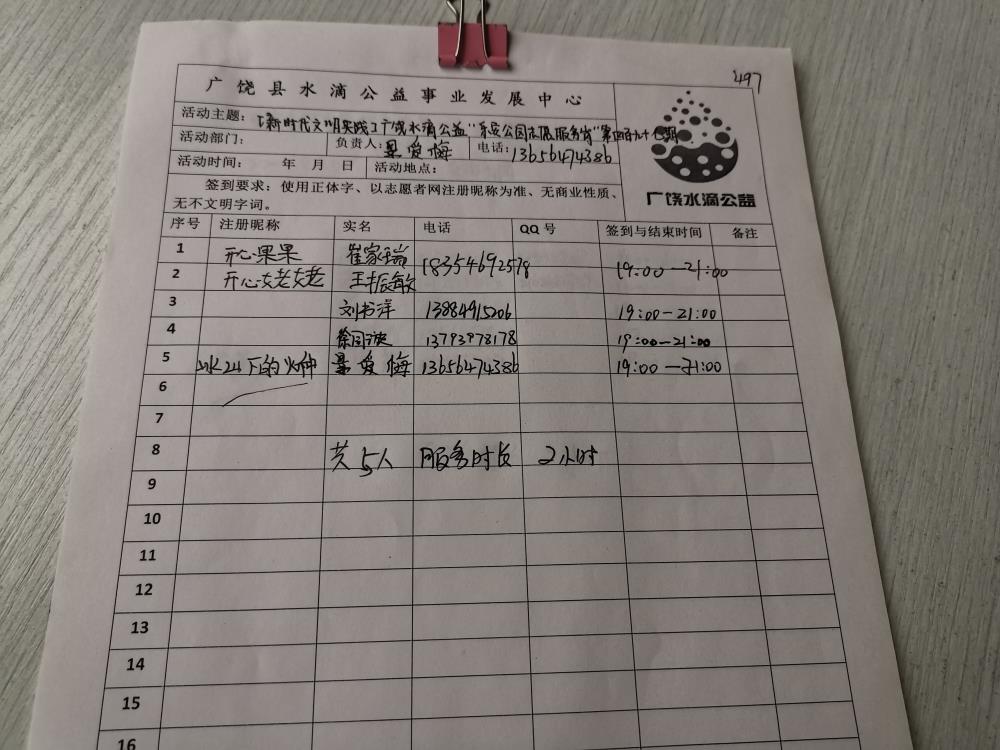 497
广饶县水滴公益事业发展中心
活动主题：「新时代文明实践」广饶水滴公益"乐安公园志愿服务岗"第四百九十七期
活动部门： 负责人： 爱梅 电话：13656474386
活动时间： 年 月 日 活动地点：
签到要求：使用正体字、以志愿者网注册昵称为准、无商业性质、
无不文明字词。
广饶水滴公益
序号 注册昵称 实名 电话 QQ号 签到与结束时间 备注
1 开心果果 崔家瑞 18354692578 19:00—21:00
2 开心姥姥 王振敏
3 刘书洋 13884915206 19:00—21:00
4 13793978178 19:00—21:00
5 冰山下的火种 爱梅 13656474386 19:00—21:00
6
7
8 共5人 服务时长 2小时
9
10
11
12
13
14
15
16